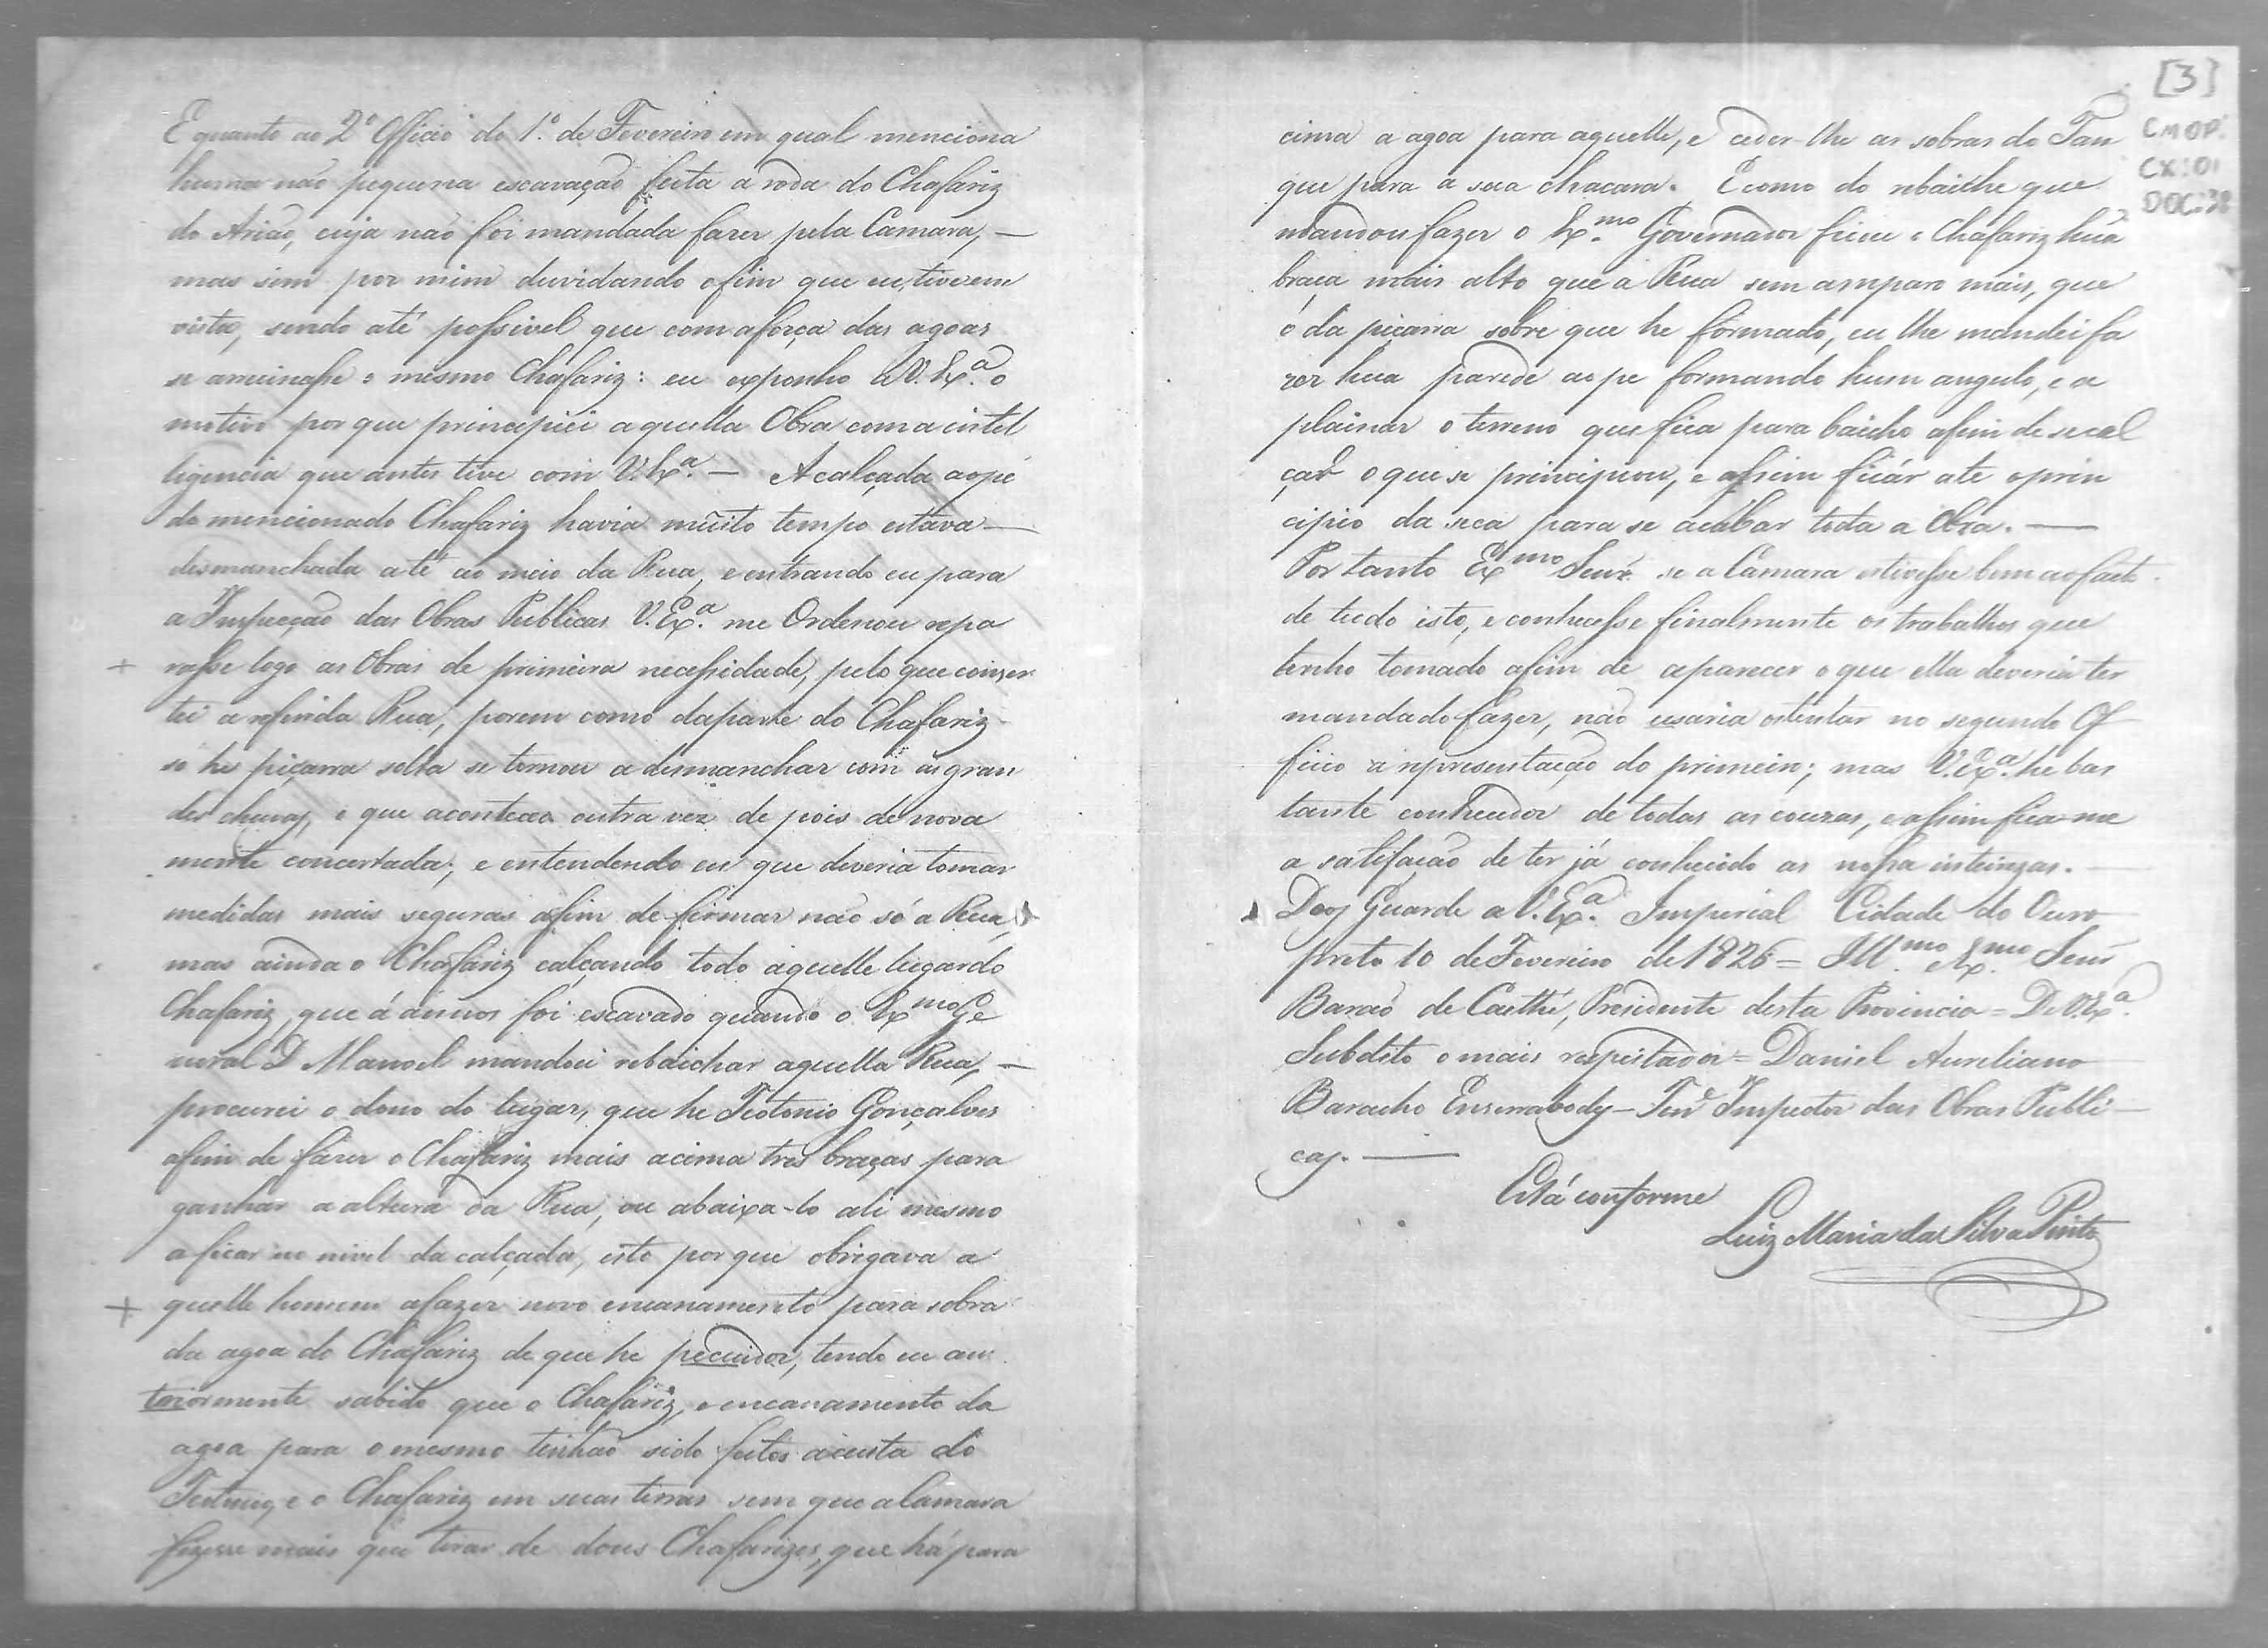 E quanto ao 2º Officio do 1º. de Fevereiro em qual menciona
huma não pequena escavação feita a roda do Chafariz
do Arião, cuja não foi mandada fazer pela Camara, —
mas sim por mim duvidando o fim que eu tive em
vista, sendo até possivel que com a força das agoas
se arruinasse o mesmo Chafariz: eu exponho a V. Exª. o
motivo por que principiei aquella Obra com a intel
ligencia que antes tive com V. Exª. — A calçada ao pé
do mencionado Chafariz havia muito tempo estava —
desmanchada até ao meio da Rua, e entrando eu para
a Inspecção das Obras Publicas V. Exª. me Ordenou repa
rasse logo as Obras de primeira necessidade, pelo que conser
tei a referida Rua, porem como da parte do Chafariz
so he piçarra solta se tornou a desmanchar com as gran
des chuvas, o que aconteceo outra vez de pois de nova
mente concertada; e entendendo eu que deveria tomar
medidas mais seguras afim de firmar não só a Rua,
mas ainda o Chafariz calçando todo aquelle lugar do
Chafariz, que á annos foi escavado quando o Exmo Ge
neral D Manoel mandou rebaichar aquella Rua, —
procurei o dono do lugar, que he Teotonio Gonçalves
afim de fazer o Chafariz mais acima tres braças para
ganhar a altura da Rua, ou abaixa-lo ali mesmo
a ficar no nivel da calçada, isto por que obrigava a
quelle homem a fazer novo encanamento para sobra
da agoa do Chafariz de que he pecuidor, tendo eu an
teriormente sabido que o Chafariz, e encanamento da
agoa para o mesmo tinhão sido feitos a custa do
Teotonio, e o Chafariz em suas terras sem que a Camara
fizesse mais que tirar de dous Chafarizes, que há para
[3]
CMOP.
CX:01
DOC:38
cima a agoa para aquelle, e ceder-lhe as sobras do Tan
que para a sua chacara. E como do rebaixhe que
mandou fazer o Exmo. Governador ficou o Chafariz hua
braça mais alto que a Rua sem amparo mais, que
o da piçarra sobre que he formado, eu lhe mandei fa
zer hua parede ao pe formando hum angulo, e a
plainar o terreno que fica para baicho afim de se cal
çar o que se principiou, e assim ficár ate o prin
cipio da seca para se acabar toda a Obra. —
Por tanto Exmo Senr. se a Camara estivesse bem ao facto
de tudo isto, e conhecesse finalmente os trabalhos que
tenho tomado afim de aparecer o que ella deveria ter
mandado fazer, não usaria ostentar no segundo Of
ficio a representação do primeiro; mas V. Exª. he bas
tante conhecedor de todas as couzas, e assim fica-me
a satisfação de ter já conhecido as nossa inteirezas. —
Deos Guarde a V. Exª. Imperial Cidade do Ouro
preto 10 de Fevereiro de 1826 = Illmo. Exmo. Senr
Barão de Caethé, Presidente desta Provincia = De V. Exª.
Subdito o mais respeitador = Daniel Aureliano
Baracho Enserrabodes — Tene Inspector das Obras Publi —
cas. —
Está conforme
Luiz Maria da Silva Pinto